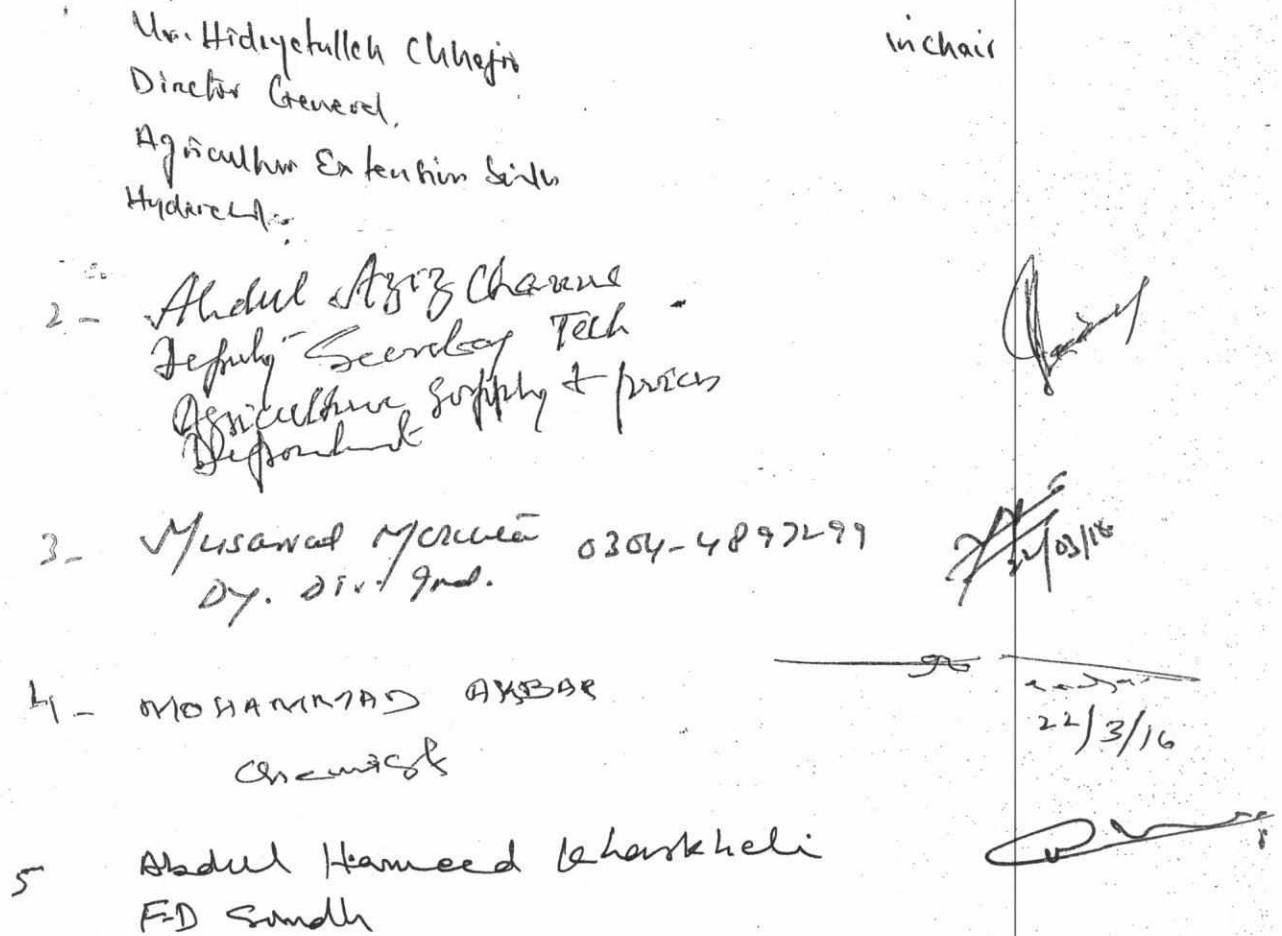 Mr. Hidayatullah Chhajro in chair
Director General,
Agriculture Extension Sindh
Hyderabad.
2- Abdul Aziz Channa
Deputy Secretary Tech
Agriculture Supply & prices
Department
3- Musawad 0304-4897299
Dy. Dir.
22/03/16
4- MOHAMMAD AKBAR
Chemist
22/3/16
5 Abdul Hameed Khaskheli
FD Sindh